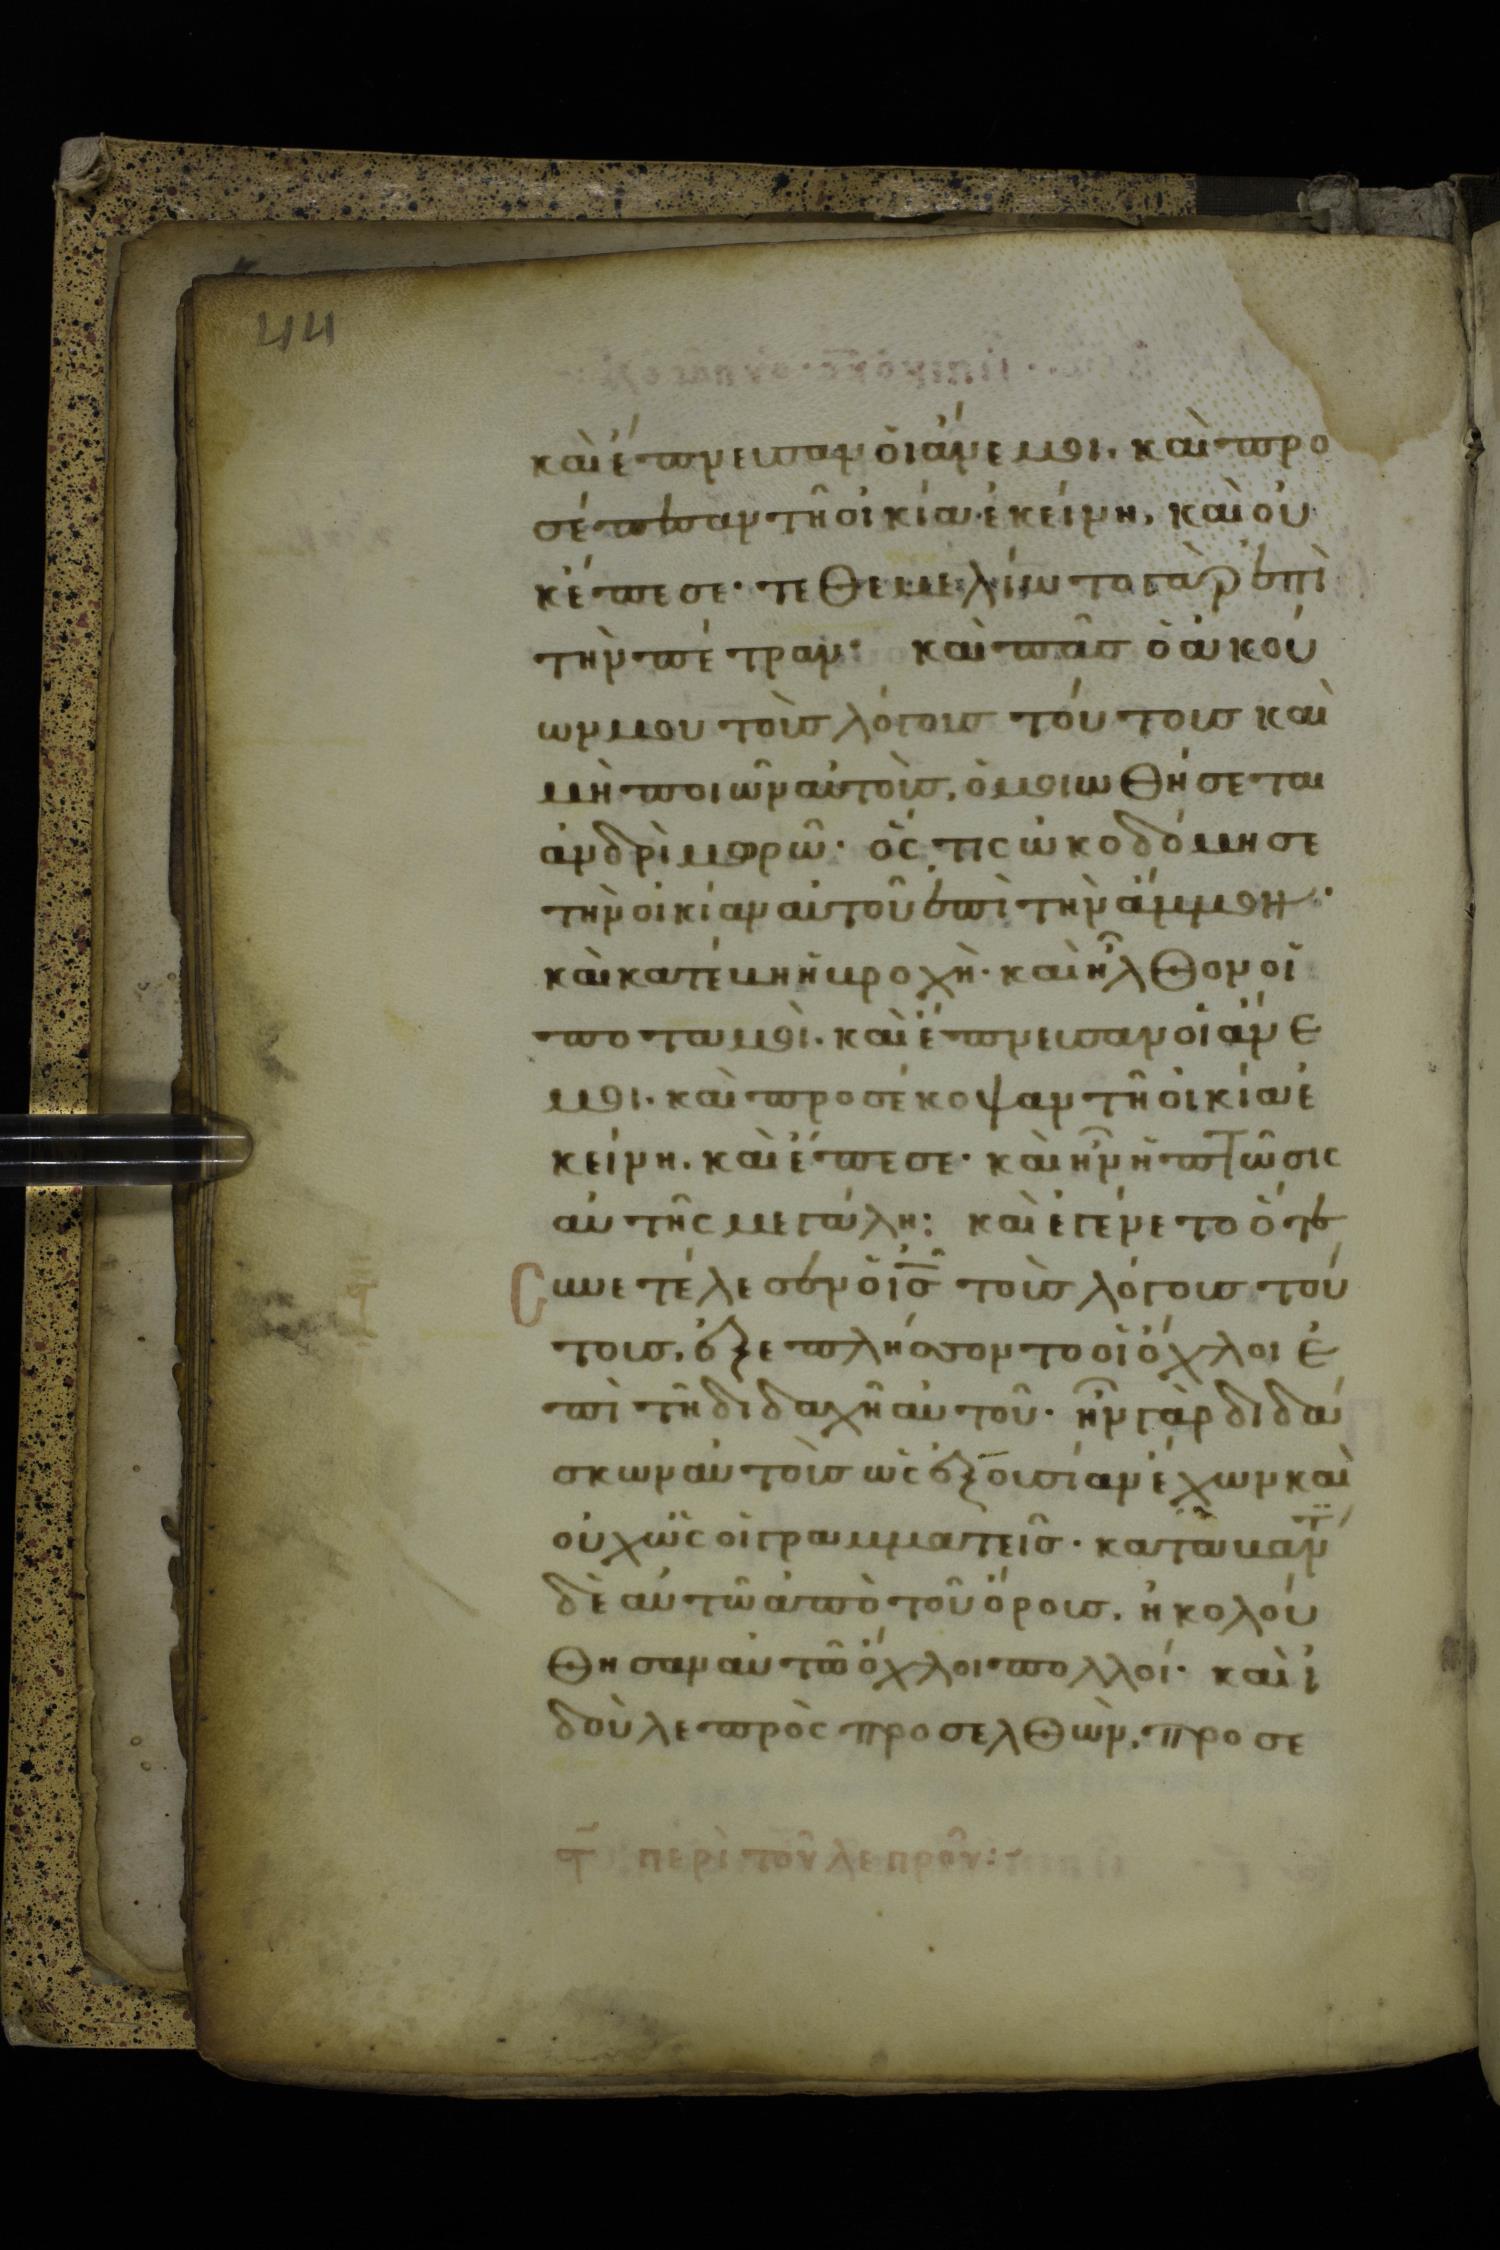 44
καὶ ἔπνευσαν ὁι ἄνεμοι. καὶ προ
σέπεσαν τῆ οἰκία ἐκείνη, καὶ οὐ
κ ἔπεσε· τεθεμελίωτο γὰρ ἐπὶ
τὴν πέτραν· καὶ πᾶσ ὁ ἀκού
ων μου τοὺσ λόγουσ τούτουσ καὶ
μὴ ποιῶν αὐτοὺσ, ὁμοιωθήσεται
ἀνδρὶ μωρῶ· ὅς τις ὠκοδόμησε
τὴν οἰκίαν αὐτοῦ ἐπὶ τὴν ἄμμον·
καὶ κατέβη ἡ βροχὴ· καὶ ἦλθον οἱ
ποταμοὶ. καὶ ἔπνευσαν οἱ ἄνε
μοι. καὶ προσέκοψαν τῆ οἰκία ἐ
κείνη. καὶ ἔπεσε· καὶ ἦν ἡ πτῶσις
αὐτῆς μεγάλη: καὶ ἐγένετο ὅτε
συνετέλεσεν ὁ ις τοὺσ λόγουσ τού
τουσ, ἐξεπλήσσοντο οἱ ὄχλοι ἐ
πὶ τῆ διδαχῆ αὐτοῦ· ἦν γὰρ διδά
σκων αὐτοὺσ ὡς ἐξουσίαν ἔχων καὶ
οὐχ ὡς οἱ γραμματεῖσ· καταβάντι
δὲ αὐτῶ ἀπὸ τοῦ ὄρουσ, ἠκολού
θησαν αὐτῶ ὄχλοι πολλοί· καὶ ἰ
δοὺ λεπρὸς προσελθὼν, προσε
ϛ περὶ τοῦ λεπροῦ:~